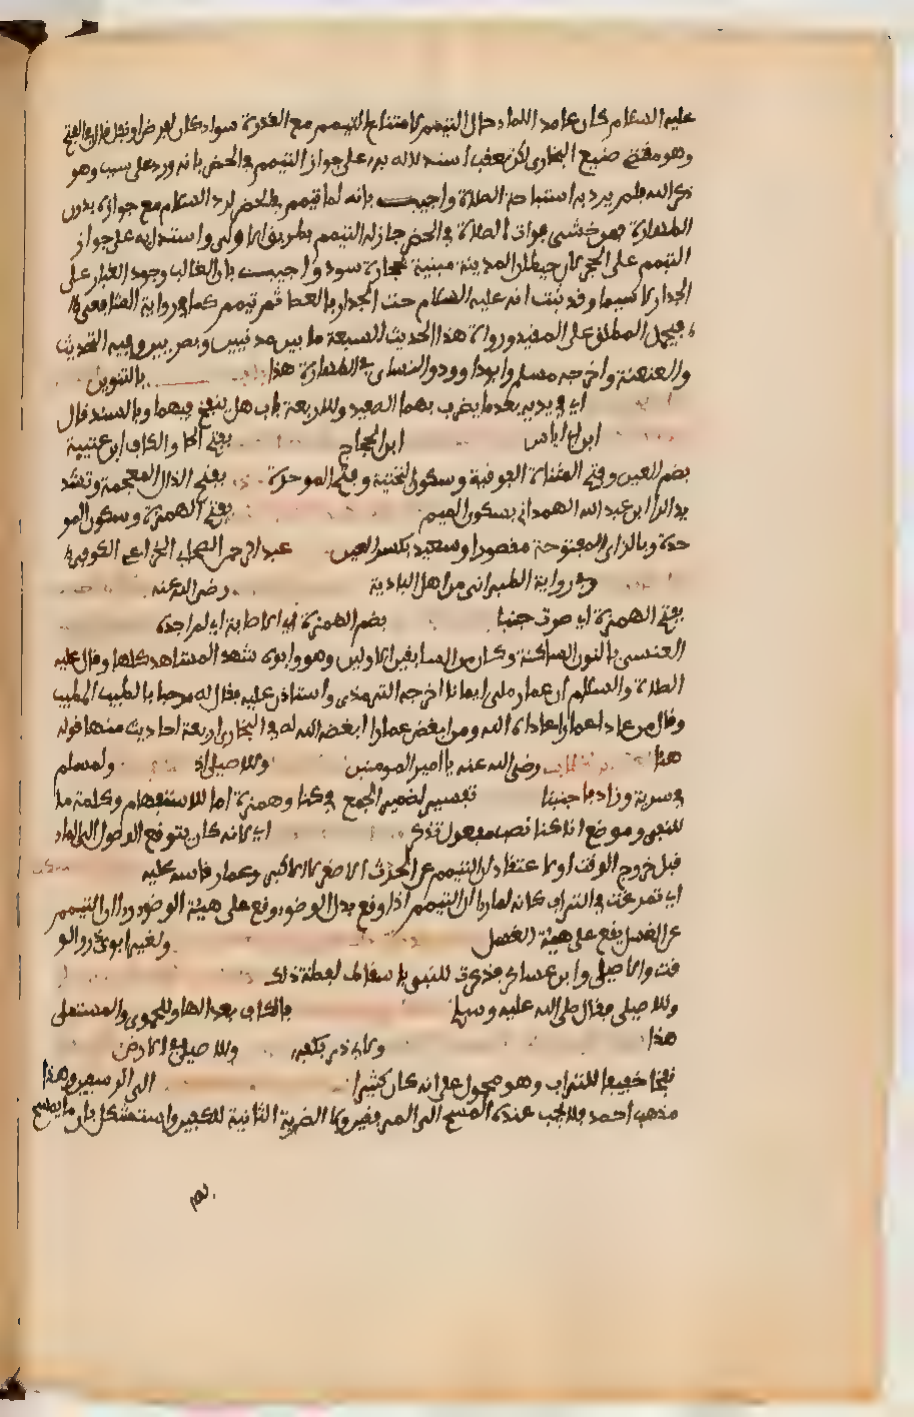 عليه السلام كان عادما للماء حال التيمم لامتناع التيمم مع القدرة سواء كان لفرض او نفل قال في الفتح
وهو مقتضى صنيع البخاري لكن تعقب استدلاله به على جواز التيمم في الحضر بانه ورد على سبب وهو
ذكر الله فلم يرد به استباحة الصلاة واجيب بانه لما تيمم في الحضر لرد السلام مع جوازه بدون
الطهارة فمن خشي فوات الصلاة في الحضر جاز له التيمم بطريق الاولى واستدل به على جواز
التيمم على الحجر لان حيطان المدينة مبنية بحجارة سود واجيب بان الغالب وجود الغبار على
الجدار لا سيما وقد ثبت انه عليه السلام حت الجدار بالعصا ثم تيمم كما في رواية الشافعي
فيحمل المطلق على المقيد ورواة هذا الحديث السبعة ما بين مدنيين وبصريين وفيه التحديث
والعنعنة واخرجه مسلم وابو داوود والنساي في الطهارة هذا بالتنوين
اي في يديه بعد ما يضرب بهما الصعيد وللاربعة باب هل ينفخ فيهما وبالسند قال
ابن ابي اياس ابن الحجاج بفتح الحا والكاف ابن عتيبة
بضم العين وفتح المثناة الفوقية وسكون التحتية وفتح الموحدة بفتح الذال المعجمة وتشد
يد الرا ابن عبد الله الهمداني بسكون الميم بفتح الهمزة وسكون المو
حدة وبالزاي المفتوحة مقصورا وسعيد بكسر العين عبد الرحمن الصحابي الخزاعي الكوفي
وفي رواية الطبراني من اهل البادية رضي الله عنه
بفتح الهمزة اي صرت جنبا بضم الهمزة من الاصابة اي لم اجده
العنسي بالنون الساكنة وكان من السابقين الاولين وهو وابوه شهد المشاهد كلها وقال عليه
الصلاة والسلام ان عمار ملئ ايمانا اخرجه الترمذي واستاذن عليه فقال له مرحبا بالطيب المطيب
وقال من عادا عمارا عاداه الله ومن ابغض عمارا ابغضه الله له في البخاري اربعة احاديث منها قوله
هنا رضي الله عنه يا امير المومنين وللاصيلي ولمسلم
في سرية وزاد فاجنبنا تفسير لضمير الجمع في كنا وهمزة اما للاستفهام وكلمة ما
للنفي وموضع انا كنا نصب مفعول تذكر اي لانه كان يتوقع الوصول الى الماء
قبل خروج الوقت او لاعتقاد ان التيمم عن الحدث الاصغر لا الاكبر وعمار قاسه عليه
اي تمرغت في التراب كانه لما راا ان التيمم اذا وقع بدل الوضوء وقع على هيئة الوضوء راا ان التيمم
عن الغسل يقع على هيئة الغسل ولغير ابوي ذر والو
قت والاصيلي وابن عساكر فذكرت للنبي باسقاط لفظة ذلك
وللاصيلي فقال صلى الله عليه وسلم بالكاف بعد الها وللحموي والمستملي
هذا ولابي ذر بكفيه وللاصيلي في الارض
نفخا خفيفا للتراب وهو محمول على انه كان كثيرا الى الرسغين وهذا
مذهب احمد فلا يجب عنده المسح الى المرفقين ولا الضربة الثانية للكفين واستشكل بان ما يمسح